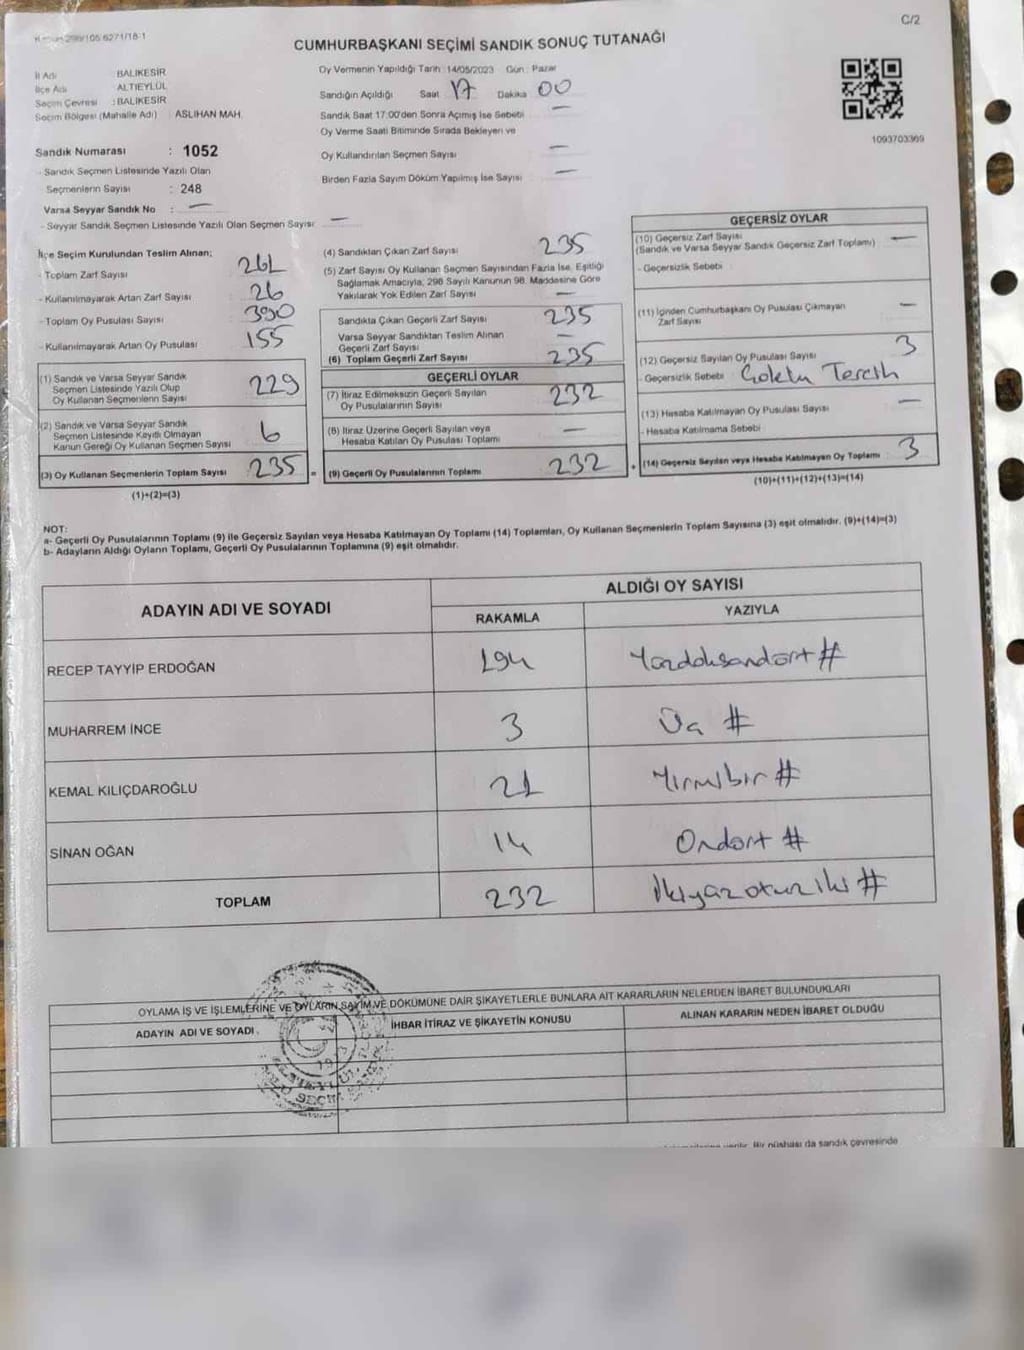 C/2
CUMHURBAŞKANI SEÇİMİ SANDIK SONUÇ TUTANAĞI
İl Adı : BALIKESİR
İlçe Adı : ALTIEYLÜL
Seçim Çevresi : BALIKESİR
Seçim Bölgesi (Mahalle Adı) : ASLIHAN MAH.
Oy Vermenin Yapıldığı Tarih : 14/05/2023 Gün : Pazar
Sandığın Açıldığı Saat 17 Dakika 00
Sandık Saat 17:00'den Sonra Açılmış İse Sebebi —
Oy Verme Saati Bitiminde Sırada Bekleyen ve
Oy Kullandırılan Seçmen Sayısı —
Birden Fazla Sayım Döküm Yapılmış İse Sayısı —
1093703369
Sandık Numarası : 1052
- Sandık Seçmen Listesinde Yazılı Olan
Seçmenlerin Sayısı : 248
Varsa Seyyar Sandık No : —
- Seyyar Sandık Seçmen Listesinde Yazılı Olan Seçmen Sayısı: —
İlçe Seçim Kurulundan Teslim Alınan;
- Toplam Zarf Sayısı : 261
- Kullanılmayarak Artan Zarf Sayısı : 26
- Toplam Oy Pusulası Sayısı : 390
- Kullanılmayarak Artan Oy Pusulası : 155
(1) Sandık ve Varsa Seyyar Sandık
Seçmen Listesinde Yazılı Olup
Oy Kullanan Seçmenlerin Sayısı 229
(2) Sandık ve Varsa Seyyar Sandık
Seçmen Listesinde Kayıtlı Olmayan
Kanun Gereği Oy Kullanan Seçmen Sayısı 6
(3) Oy Kullanan Seçmenlerin Toplam Sayısı 235 =
(1)+(2)=(3)
(4) Sandıktan Çıkan Zarf Sayısı 235
(5) Zarf Sayısı Oy Kullanan Seçmen Sayısından Fazla İse, Eşitliği
Sağlamak Amacıyla, 298 Sayılı Kanunun 98. Maddesine Göre
Yakılarak Yok Edilen Zarf Sayısı —
Sandıkta Çıkan Geçerli Zarf Sayısı 235
Varsa Seyyar Sandıktan Teslim Alınan
Geçerli Zarf Sayısı —
(6) Toplam Geçerli Zarf Sayısı 235
GEÇERLİ OYLAR
(7) İtiraz Edilmeksizin Geçerli Sayılan
Oy Pusulalarının Sayısı 232
(8) İtiraz Üzerine Geçerli Sayılan veya
Hesaba Katılan Oy Pusulası Toplamı —
(9) Geçerli Oy Pusulalarının Toplamı 232 +
GEÇERSİZ OYLAR
(10) Geçersiz Zarf Sayısı
(Sandık ve Varsa Seyyar Sandık Geçersiz Zarf Toplamı) —
- Geçersizlik Sebebi :
(11) İçinden Cumhurbaşkanı Oy Pusulası Çıkmayan
Zarf Sayısı —
(12) Geçersiz Sayılan Oy Pusulası Sayısı 3
- Geçersizlik Sebebi :
(13) Hesaba Katılmayan Oy Pusulası Sayısı —
- Hesaba Katılmama Sebebi
(14) Geçersiz Sayılan veya Hesaba Katılmayan Oy Toplamı 3
(10)+(11)+(12)+(13)=(14)
NOT:
a- Geçerli Oy Pusulalarının Toplamı (9) ile Geçersiz Sayılan veya Hesaba Katılmayan Oy Toplamı (14) Toplamları, Oy Kullanan Seçmenlerin Toplam Sayısına (3) eşit olmalıdır. (9)+(14)=(3)
b- Adayların Aldığı Oyların Toplamı, Geçerli Oy Pusulalarının Toplamına (9) eşit olmalıdır.
ADAYIN ADI VE SOYADI ALDIĞI OY SAYISI
RAKAMLA YAZIYLA
RECEP TAYYİP ERDOĞAN 194 Yüzdoksandört #
MUHARREM İNCE 3 Üç #
KEMAL KILIÇDAROĞLU 21 Yirmibir #
SİNAN OĞAN 14 Ondört #
TOPLAM 232 İkiyüzotuziki #
OYLAMA İŞ VE İŞLEMLERİNE VE OYLARIN SAYIM VE DÖKÜMÜNE DAİR ŞİKAYETLERLE BUNLARA AİT KARARLARIN NELERDEN İBARET BULUNDUKLARI
ADAYIN ADI VE SOYADI İHBAR İTİRAZ VE ŞİKAYETİN KONUSU ALINAN KARARIN NEDEN İBARET OLDUĞU
Bir nüshası da sandık çevresinde